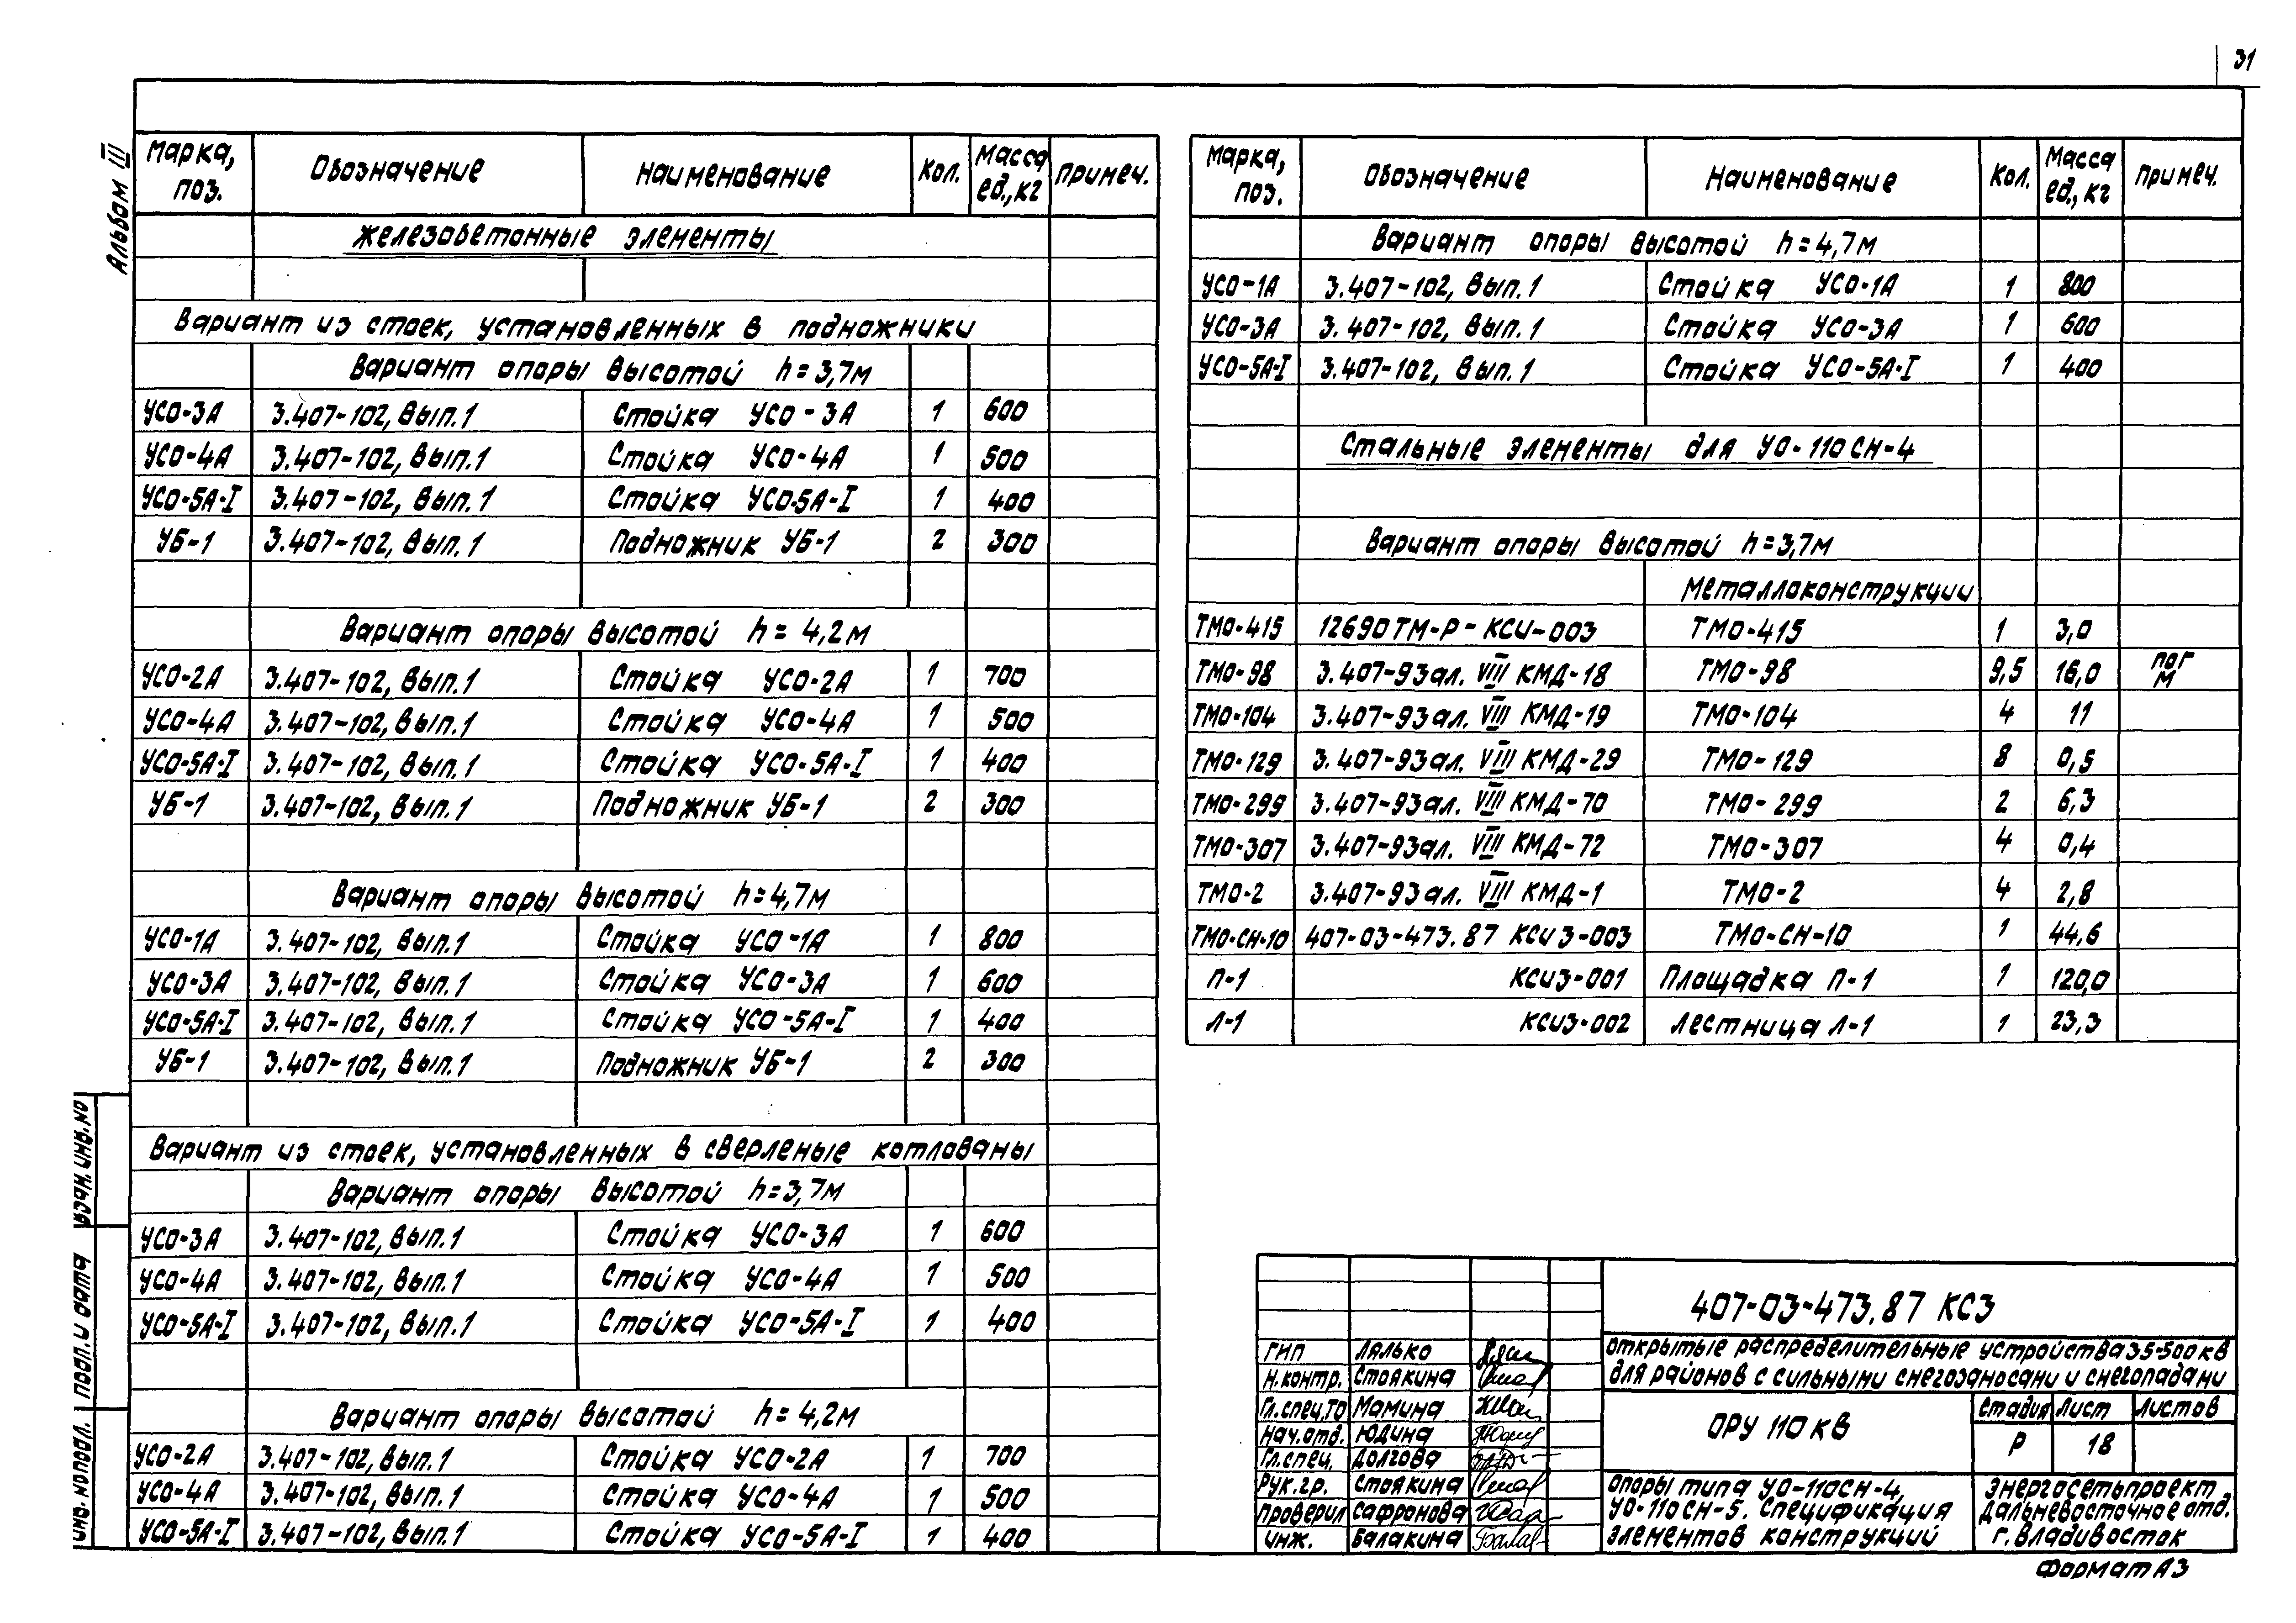 31
Альбом III
Марка, поз. Обозначение Наименование Кол. Масса ед., кг Примеч.
Железобетонные элементы
Вариант из стоек, установленных в подножники
Вариант опоры высотой h = 3,7м
УСО-3А 3.407-102, Вып.1 Стойка УСО-3А 1 600
УСО-4А 3.407-102, Вып.1 Стойка УСО-4А 1 500
УСО-5А-I 3.407-102, Вып.1 Стойка УСО-5А-I 1 400
УБ-1 3.407-102, Вып.1 Подножник УБ-1 2 300
Вариант опоры высотой h = 4,2м
УСО-2А 3.407-102, Вып.1 Стойка УСО-2А 1 700
УСО-4А 3.407-102, Вып.1 Стойка УСО-4А 1 500
УСО-5А-I 3.407-102, Вып.1 Стойка УСО-5А-I 1 400
УБ-1 3.407-102, Вып.1 Подножник УБ-1 2 300
Вариант опоры высотой h = 4,7м
УСО-1А 3.407-102, Вып.1 Стойка УСО-1А 1 800
УСО-3А 3.407-102, Вып.1 Стойка УСО-3А 1 600
УСО-5А-I 3.407-102, Вып.1 Стойка УСО-5А-I 1 400
УБ-1 3.407-102, Вып.1 Подножник УБ-1 2 300
Вариант из стоек, установленных в сверленые котлованы
Вариант опоры высотой h = 3,7м
УСО-3А 3.407-102, Вып.1 Стойка УСО-3А 1 600
УСО-4А 3.407-102, Вып.1 Стойка УСО-4А 1 500
УСО-5А-I 3.407-102, Вып.1 Стойка УСО-5А-I 1 400
Вариант опоры высотой h = 4,2м
УСО-2А 3.407-102, Вып.1 Стойка УСО-2А 1 700
УСО-4А 3.407-102, Вып.1 Стойка УСО-4А 1 500
УСО-5А-I 3.407-102, Вып.1 Стойка УСО-5А-I 1 400
Марка, поз. Обозначение Наименование Кол. Масса ед., кг Примеч.
Вариант опоры высотой h = 4,7м
УСО-1А 3.407-102, Вып.1 Стойка УСО-1А 1 800
УСО-3А 3.407-102, Вып.1 Стойка УСО-3А 1 600
УСО-5А-I 3.407-102, Вып.1 Стойка УСО-5А-I 1 400
Стальные элементы для УО-110СН-4
Вариант опоры высотой h = 3,7м
Металлоконструкции
ТМО-415 12690ТМ-Р-КСИ-003 ТМО-415 1 3,0
ТМО-98 3.407-93 ал. VIII КМД-18 ТМО-98 9,5 16,0 пог м
ТМО-104 3.407-93 ал. VIII КМД-19 ТМО-104 4 11
ТМО-129 3.407-93 ал. VIII КМД-29 ТМО-129 8 0,5
ТМО-299 3.407-93 ал. VIII КМД-70 ТМО-299 2 6,3
ТМО-307 3.407-93 ал. VIII КМД-72 ТМО-307 4 0,4
ТМО-2 3.407-93 ал. VIII КМД-1 ТМО-2 4 2,8
ТМО-СН-10 407-03-473.87 КСИ3-003 ТМО-СН-10 1 44,6
П-1 КСИ3-001 Площадка П-1 1 120,0
Л-1 КСИ3-002 Лестница Л-1 1 23,3
407-03-473.87 КС3
Открытые распределительные устройства 35-500кВ
для районов с сильными снегозаносами и снегопадами
ГИП Лялько
Н.контр. Стоякина
Гл.спец.ТО Мамина
Нач.отд. Юдина
Гл.спец. Долгова
Рук.гр. Стоякина
Проверил Сафронова
Инж. Балакина
ОРУ 110 кВ
Стадия Лист Листов
Р 18
Опоры типа УО-110СН-4,
УО-110СН-5. Спецификация
элементов конструкций
Энергосетьпроект
Дальневосточное отд.
г. Владивосток
Формат А3
Инв.№подл. Подп. и дата Взам.инв.№